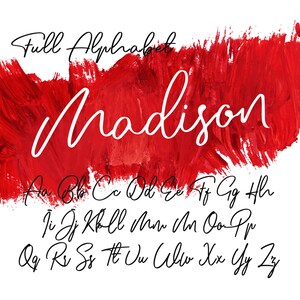 Full Alphabet
Madison
Aa Bb Cc Dd Ee Ff Gg Hh
Ii Jj Kk Ll Mm Nn Oo Pp
Qq Rr Ss Tt Uu Ww Xx Yy Zz